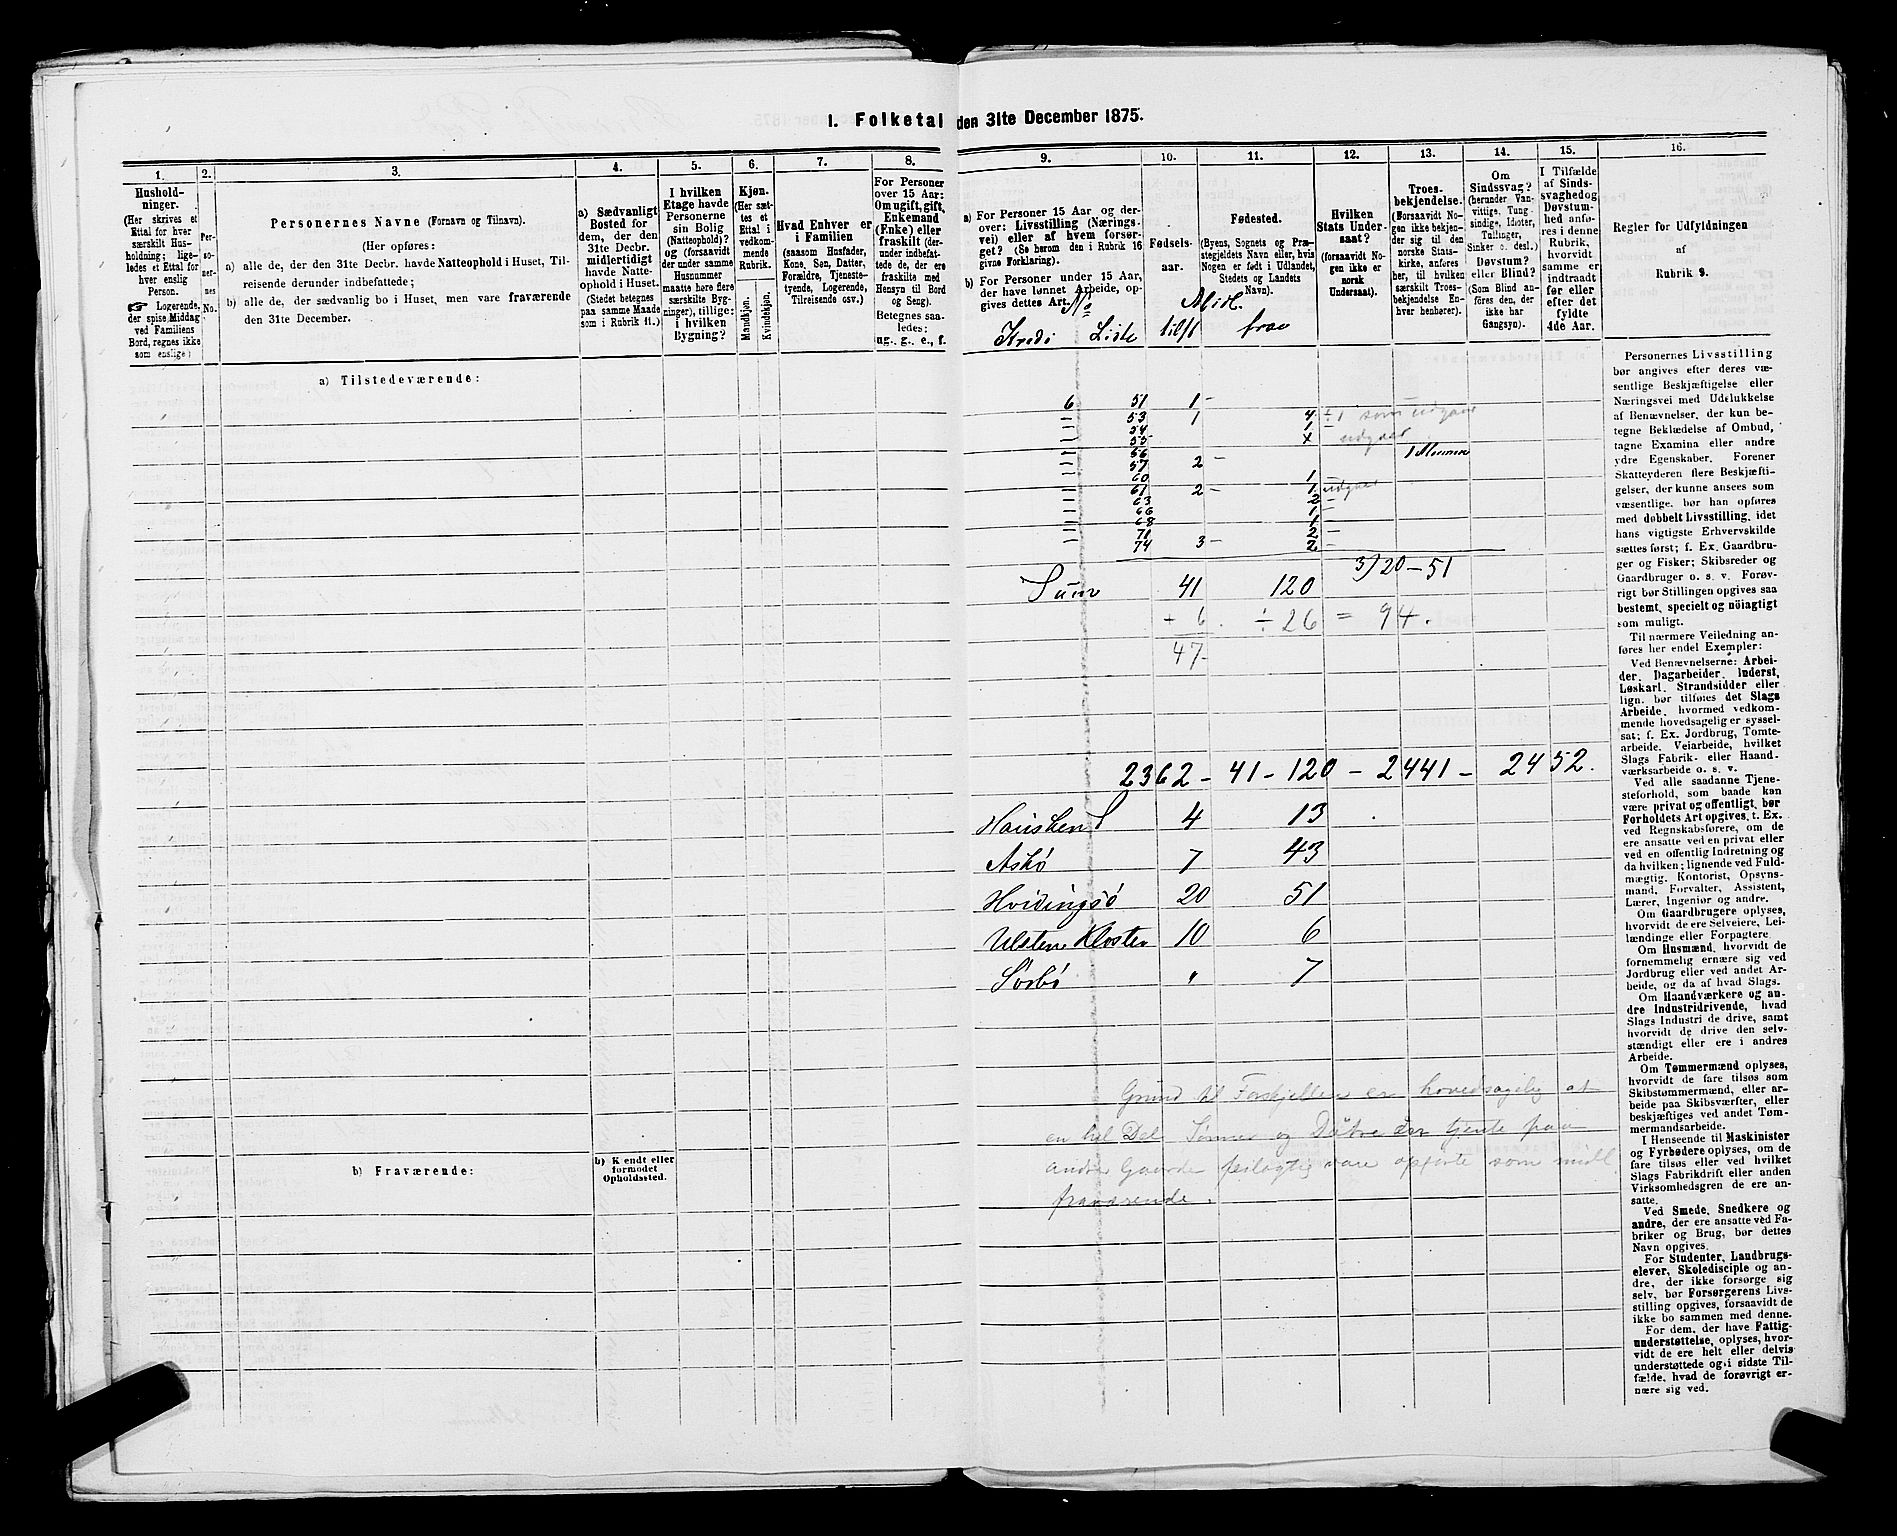 1. Folketal den 31te December 1875.
1.
2.
3.
4.
5.
6.
7.
8.
9.
10.
11.
12.
13.
14.
15.
16.
Hushold-
ninger.
(Her skrives et
Ettal for hver
særskilt Hus-
holdning; lige-
ledes et Ettal for
hver enslig
Person.
☞ Logerende,
der spise Middag
ved Familiens
Bord, regnes ikke
som enslige)
Per-
so-
ner-
nes
No.
Personernes Navne (Fornavn og Tilnavn).
(Her opføres:
a) alle de, der den 31te Decbr. havde Natteophold i Huset, Til-
reisende derunder indbefattede;
b) alle de, der sædvanlig bo i Huset, men vare fraværende
den 31te December.
a) Sædvanligt
Bosted for
dem, der den
31te Decbr.
midlertidigt
havde Natte-
ophold i Huset.
(Stedet betegnes
paa samme Maade
som i Rubrik 11.)
I hvilken
Etage havde
Personerne
sin Bolig
(Natteophold)?
og (forsaavidt
der under samme
Husnummer
maatte høre flere
særskilte Byg-
ninger), tillige:
i hvilken
Bygning?
Kjøn.
(Her sæt-
tes et
Ettal i
vedkom-
mende
Rubrik.
Mandkjøn.
Kvindekjøn.
Hvad Enhver er
i Familien
(saasom Husfader,
Kone, Søn, Datter,
Forældre, Tjeneste-
tyende, Logerende,
Tilreisende osv.)
For Personer
over 15 Aar:
Om ugift, gift,
Enkemand
(Enke) eller
fraskilt (der-
under indbefat-
tede de, der ere
fraskilte med
Hensyn til Bord
og Seng).
Betegnes saa-
ledes:
ug., g., e., f.
a) For Personer 15 Aar og der-
over: Livsstilling (Nærings-
vei) eller af hvem forsør-
get? (Se herom den i Rubrik 16
givne Forklaring).
b) For Personer under 15 Aar,
der have lønnet Arbeide, op-
gives dettes Art.
Fødsels-
aar.
Fødested.
(Byens, Sognets og Præ-
stegjeldets Navn eller, hvis
Nogen er født i Udlandet,
Stedets og Landets
Navn).
Hvilken
Stats Under-
saat?
(forsaavidt No-
gen ikke er
norsk
Undersaat).
Troes-
bekjendelse.
(Forsaavidt No-
gen ikke bekjen-
der sig til den
norske Stats-
kirke, anføres
her, til hvilken
særskilt Troes-
bekjendelse En-
hver henhører).
Om
Sindssvag?
(herunder Van-
vittige, Tung-
sindige, Idioter,
Tullinger,
Sinker o. desl.)
Døvstum?
eller Blind?
(Som Blind an-
føres den, der
ikke har
Gangsyn).
I Tilfælde
af Sinds-
svaghed og
Døvstum-
hed anfø-
res i denne
Rubrik,
hvorvidt
samme er
indtraadt
før eller
efter det
fyldte
4de Aar.
Regler for Udfyldningen
af
Rubrik 9.
No Midl.
Kredö Liste tilst fra
a) Tilstedeværende:
6 51 1 -
" 53 1 4 ÷1 som udgaar
54 1 -
" 55 x - udgaar
" 56
57 2 -
60 1 -
" 61 2 - 1 udgaar
" 63 2
" 66 1 -
" 68 1
" 71 2 -
" 74 3 - 2 -
3) 20 - 51
Sum 41 120
+ 6. ÷ 26 = 94.
47-
2362 - 41 - 120 - 2441 - 2452.
Hausken 4 13
Askö 7 43
Hvidingsö 20 51
Utsten Kloster 10 6
Sörbö " 7
Grund til Forskjellen er hovedsagelig at
en hel Del Sønner og Døtre der tjente paa
andre Gaarde feilagtig vare opførte som midl.
fraværende.
b) Fraværende:
b) Kjendt eller
formodet
Opholdssted.
Personernes Livsstilling
bør angives efter deres væ-
sentlige Beskjæftigelse eller
Næringsvei med Udelukkelse
af Benævnelser, der kun be-
tegne Beklædelse af Ombud,
tagne Examina eller andre
ydre Egenskaber. Forener
Skatteyderen flere Beskjæfti-
gelser, der kunne ansees som
væsentlige, bør han opføres
med dobbelt Livsstilling, idet
hans vigtigste Erhvervskilde
sættes først; f. Ex. Gaardbru-
ger og Fisker; Skibsreder og
Gaardbruger o. s. v. Forøv-
rigt bør Stillingen opgives saa
bestemt, specielt og nöiagtigt
som muligt.
Til nærmere Veiledning an-
føres her endel Exempler:
Ved Benævnelserne: Arbei-
der, Dagarbeider, Inderst,
Løskarl, Strandsidder eller
lign. bør tilføres det Slags
Arbeide, hvormed vedkom-
mende hovedsagelig er syssel-
sat; f. Ex. Jordbrug, Tomte-
arbeide, Veiarbeide, hvilket
Slags Fabrik- eller Haand-
værksarbeide o. s. v.
Ved alle saadanne Tjene-
steforhold, som baade kan
være privat og offentligt, bør
Forholdets Art opgives, t. Ex.
ved Regnskabsførere, om de
ere ansatte ved en privat eller
ved en offentlig Indretning og
da hvilken; lignende ved Fuld-
mægtig, Kontorist, Opsyns-
mand, Forvalter, Assistent,
Lærer, Ingeniør og andre.
Om Gaardbrugere oplyses,
hvorvidt de ere Selveiere, Lei-
lændinge eller Forpagtere.
Om Husmænd, hvorvidt de
fornemmelig ernære sig ved
Jordbrug eller ved andet Ar-
beide, og da af hvad Slags.
Om Haandværkere og an-
dre Industridrivende, hvad
Slags Industri de drive, samt
hvorvidt de drive den selv-
stændigt eller ere i andres
Arbeide.
Om Tømmermænd oplyses,
hvorvidt de fare tilsøs som
Skibstømmermænd, eller ar-
beide paa Skibsværfter, eller
beskjæftiges ved andet Tøm-
mermandsarbeide.
I Henseende til Maskinister
og Fyrbødere oplyses, om de
fare tilsøs eller ved hvilket
Slags Fabrikdrift eller anden
Virksomhedsgren de ere an-
satte.
Ved Smede, Snedkere og
andre, der ere ansatte ved Fa-
briker og Brug, bør dettes
Navn opgives.
For Studenter, Landbrugs-
elever, Skoledisciple og an-
dre, der ikke forsørge sig
selv, bør Forsørgerens Livs-
stilling opgives, forsaavidt de
ikke bo sammen med denne.
For dem, der have Fattig-
understøttelse, oplyses, hvor-
vidt de ere helt eller delvis
understøttede og i sidste Til-
fælde, hvad de forøvrigt er-
nære sig ved.